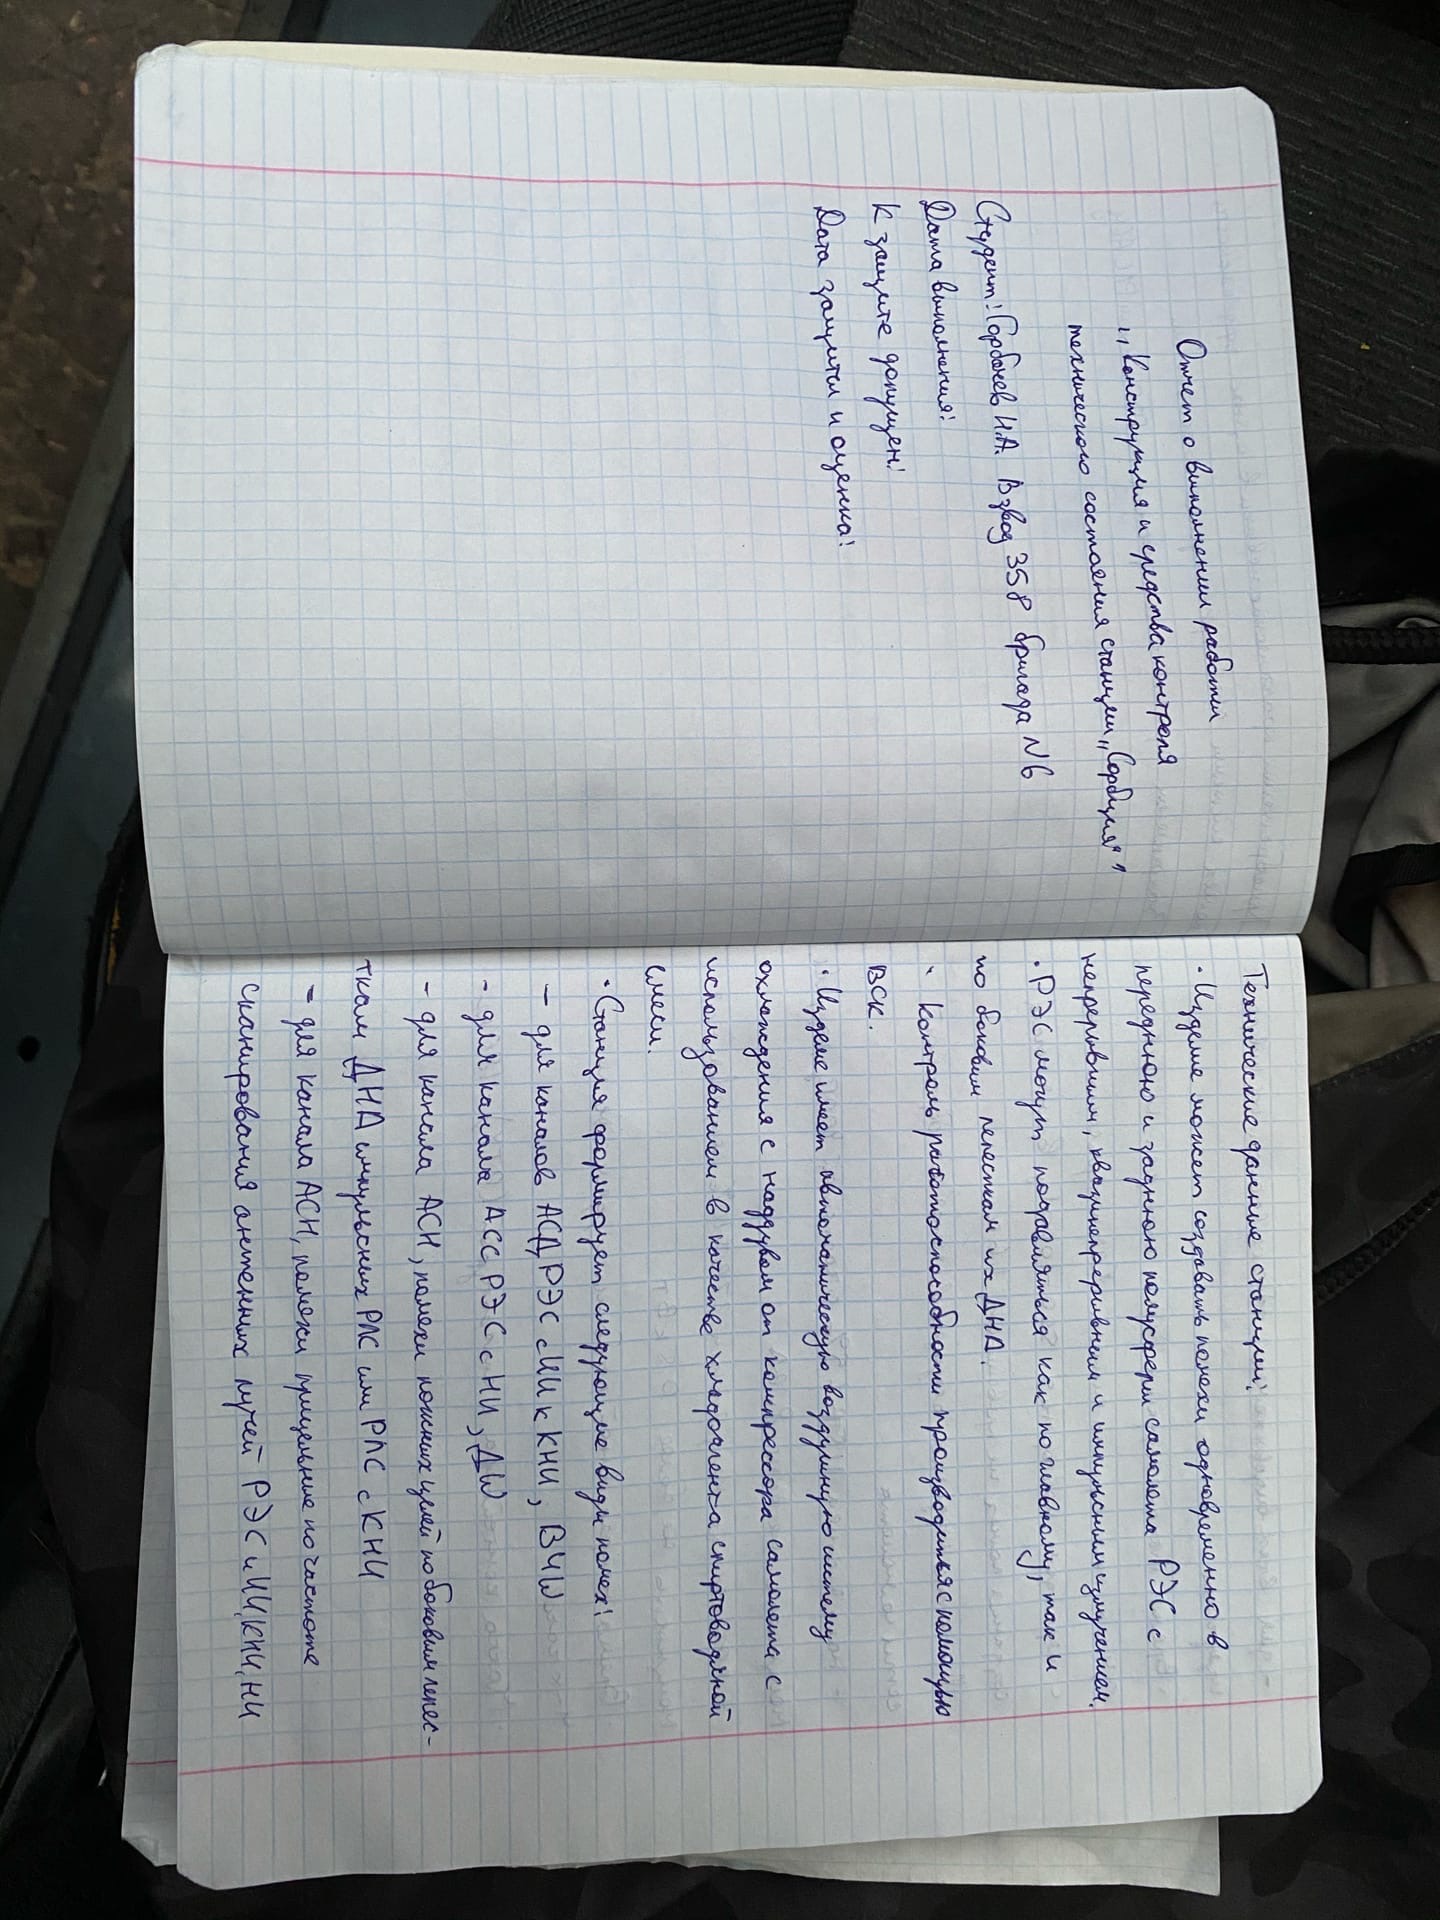 Отчет о выполнении работы
„Конструкция и средства контроля
технического состояния станции „Сорбция“ "
Студент: Горбачев И.А. Взвод 358 бригада N6
Дата выполнения:
К защите допущен:
Дата защиты и оценка:
Технические данные станции:
· Изделие может создавать помехи одновременно в
переднюю и заднюю полусферы самолета РЭС с
непрерывным, квазинепрерывным и импульсным излучением.
· РЭС могут подавляться как по главному, так и
по боковым лепесткам их ДНА.
· Контроль работоспособности производиться с помощью
ВСК.
· Изделие имеет автоматическую воздушную систему
охлаждения с наддувом от компрессора самолета с
использованием в качестве хладоагента спиртоводяной
смеси.
· Станция формирует следующие виды помех:
— для каналов АСД РЭС с ИИ и КНИ, ВЧШ
- для канала АСС РЭС с НИ, ДШ
- для канала АСН, помехи ложных целей по боковым лепес-
ткам ДНА импульсных РЛС или РЛС с КНИ
- для канала АСН, помехи прицельные по частоте
сканирования антенных лучей РЭС с ИИ, КНИ, НИ